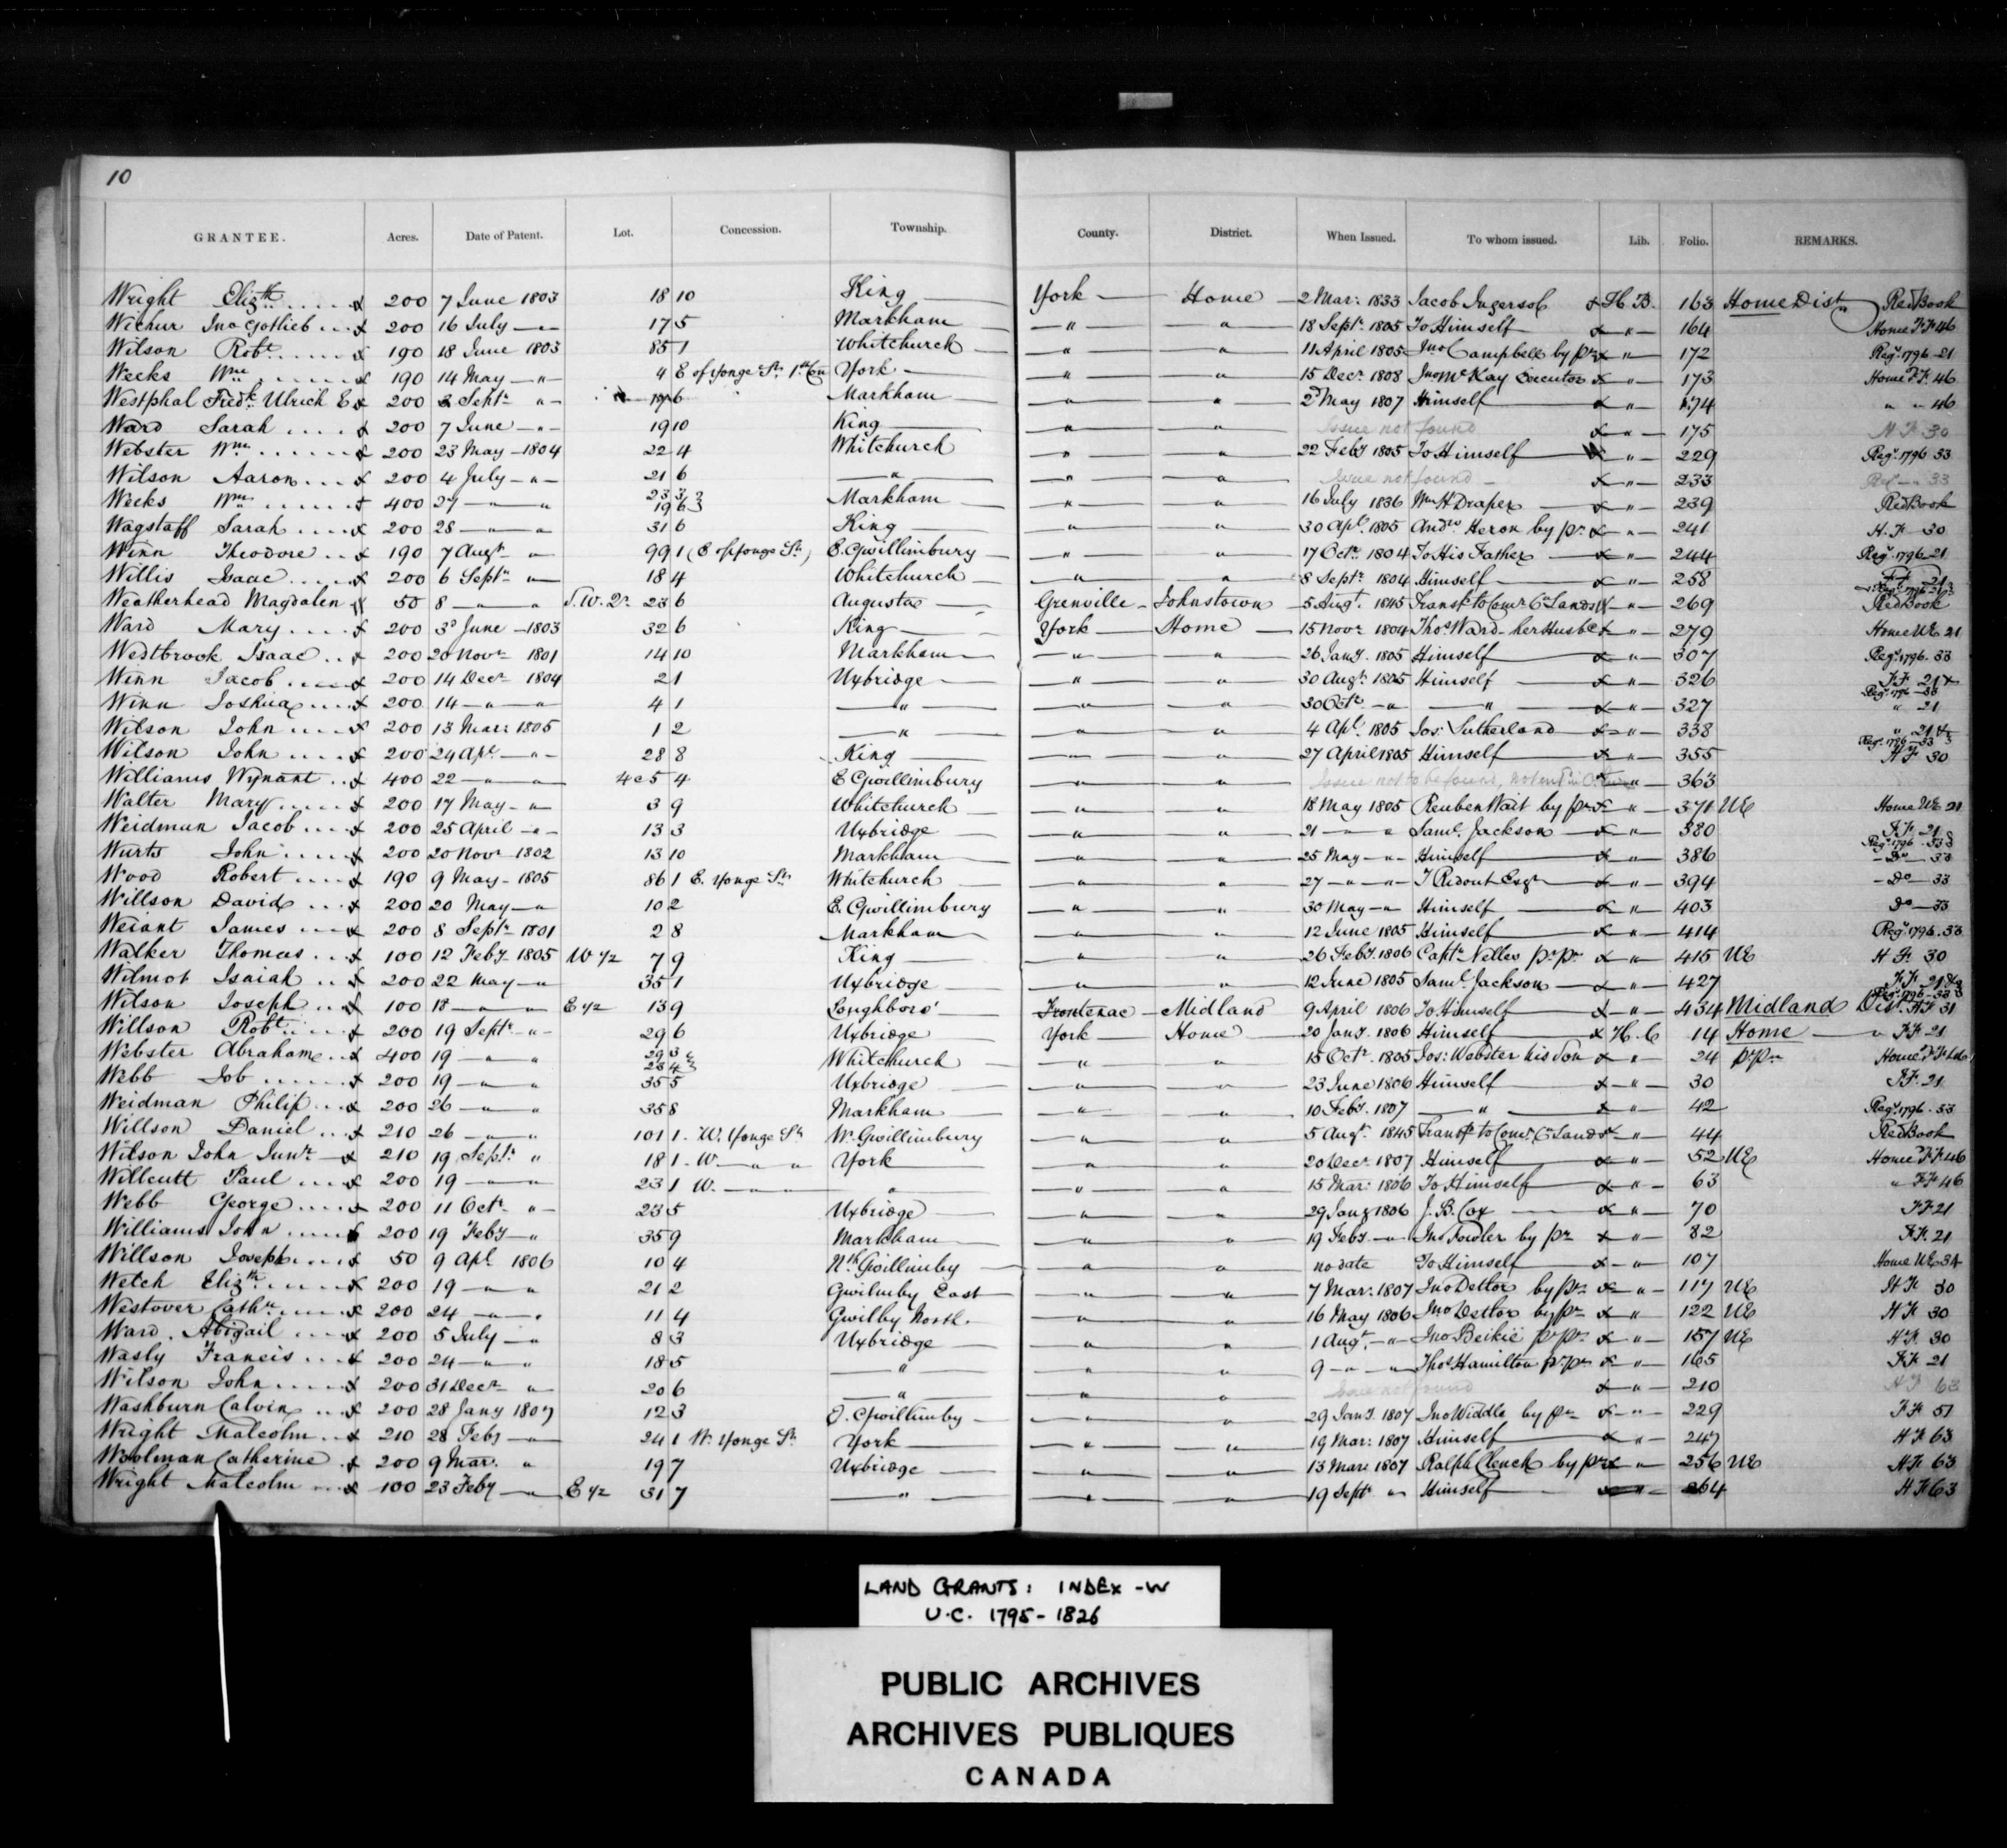 10
GRANTEE. Acres. Date of Patent. Lot. Concession. Township. County. District. When Issued. To whom issued. Lib. Folio. REMARKS.
Wright Elizth 200 7 June 1803 18 10 King York Home 2 Mar: 1833 Jacob Ingersol H. B. 163 Home Dist Red Book
Wichur Jno Gotlieb 200 16 July " 17 5 Markham " " 18 Septr 1805 To Himself " 164 Home F.F. 46
Wilson Robt 190 18 June 1803 85 1 Whitchurch " " 11 April 1805 Jno Campbell by pr " 172 Regr 1796-21
Weeks Wm 190 14 May " 4 E of Yonge St. 1st Con York " " 15 Decr 1808 Jno McKay Executor " 173 Home F.F. 46
Westphal Fredk Ulrich E 200 Septr " 6 Markham " " 2d May 1807 Himself " 174 " " 46
Ward Sarah 200 7 June " 19 10 King " " Issue not found " 175 30
Webster Wm 200 23 May 1804 22 4 Whitchurch " " 22 Feby 1805 To Himself " 229 Regr 1796 33
Wilson Aaron 200 4 July " 21 6 " " " Issue not found " 233 33
Weeks Wm 400 27 " " 23 3 Markham " " 16 July 1836 Wm H Draper " 239 Red Book
19 6
Wagstaff Sarah 200 28 " " 31 6 King " " 30 Apl. 1805 Andw Heron by pr " 241 H.F. 30
Winn Theodore 190 7 Augt " 99 1 (E of Yonge St.) E. Gwillimbury " " 17 Octr 1804 To His Father " 244 Regr 1796 21
Willis Isaac 200 6 Septr " 18 4 Whitchurch " " 8 Septr 1804 Himself " 258 21
Weatherhead Magdalen 50 8 " " S.W. Qr 23 6 Augusta Grenville Johnstown 5 Augt. 1845 Transfr to Comr Cn Lands " 269 Red Book
Ward Mary 200 3d June 1803 32 6 King York Home 15 Novr 1804 Thos Ward her Husbd " 279 Home UE 21
Westbrook Isaac 200 20 Novr 1801 14 10 Markham " " 26 Jany. 1805 Himself " 307 Regr 1796. 33
Winn Jacob 200 14 Decr 1804 2 1 Uxbridge " " 30 Augt 1805 Himself " 326 F.F. 21
Winn Joshua 200 14 " " 4 1 " " " 30 Octr " " " 327 Regr 1796 33 " 21
Wilson John 200 13 Mar: 1805 1 2 " " " 4 Apl. 1805 Jos: Sutherland " 338 " 21
Wilson John 200 24 Apl " 28 8 King " " 27 April 1805 Himself " 355 Regr 1796 33 H F 30
Williams Wynant 400 22 " " 4 & 5 4 E Gwillimbury " " Issue not to be found, " 363
Walter Mary 200 17 May " 3 9 Whitchurch " " 18 May 1805 Reuben Wait by pr " 371 UE Home UE 21
Weidman Jacob 200 25 April " 13 3 Uxbridge " " 21 " " Saml. Jackson " 380 F.F. 21
Wurts John 200 20 Novr 1802 13 10 Markham " " 25 May " Himself " 386 Regr 1796 33 Do 33
Wood Robert 190 9 May 1805 86 1 E. Yonge St. Whitchurch " " 27 " " T Ridout Esqr " 394 Do 33
Willson David 200 20 May " 10 2 E. Gwillimbury " " 30 May " Himself " 403 Do 33
Weiant James 200 8 Septr 1801 2 8 Markham " " 12 June 1805 Himself " 414 Regr 1796. 33
Walker Thomas 100 12 Feby 1805 W 1/2 7 9 King " " 26 Feby. 1806 Captn Nelles pr pr " 415 UE H F. 30
Wilmot Isaiah 200 22 May " 35 1 Uxbridge " " 12 June 1805 Saml. Jackson " 427 F.F. 21
Wilson Joseph 100 18 " " E 1/2 13 9 Loughboro' Frontenac Midland 9 April 1806 To Himself " 434 Midland Dist. H F 31
Willson Robt 200 19 Septr " 29 6 Uxbridge York Home 20 Jany. 1806 Himself H. C 14 Home " F.F. 21
Webster Abraham 400 19 " " 29 3 Whitchurch " " 15 Octr. 1805 Jos: Webster his Son " 24 pr pr Home F.F.
4
Webb Job 200 19 " " 35 5 Uxbridge " " 23 June 1806 Himself " 30 F.F. 21
Weidman Philip 200 26 " " 35 8 Markham " " 10 Feby. 1807 " " 42 Regr 1796. 33
Willson Daniel 210 26 " " 101 1. W. Yonge St W. Gwillimbury " " 5 Augt. 1845 Transfr to Comr Cn Lands " 44 Red Book
Wilson John Junr 210 19 Septr " 18 1. W. " " York " " 20 Decr. 1807 Himself " 52 UE Home F.F. 46
Willcutt Paul 200 19 " " 23 1 W. " " " " " 15 Mar: 1806 To Himself " 63 " F.F. 46
Webb George 200 11 Octr " 23 5 Uxbridge " " 29 Jany 1806 J. B. Cox " 70 F.F. 21
Williams John 200 19 Feby " 35 9 Markham " " 19 Feby. " Jno Fowler by pr " 82 F.F. 21
Willson Joseph 50 9 Apl. 1806 10 4 Nth Gwillimby " " no date To Himself " 107 Home UE 34
Welch Elizth 200 19 " " 21 2 Gwilmby East " " 7 Mar: 1807 Jno Detlor by pr " 117 UE H F. 30
Westover Cathr 200 24 " " 11 4 Gwilby North. " " 16 May 1806 Jno Detlor by pr " 122 UE H F. 30
Ward. Abigail 200 5 July " 8 3 Uxbridge " " 1 Augt. " Jno Beikie pr pr " 157 UE H.F. 30
Wasly Francis 200 24 " " 18 5 " " " 9 " " Thos Hamilton pr pr " 165 F.F. 21
Wilson John 200 31 Decr " 20 6 " " " Issue not found " 210 63
Washburn Calvin 200 28 Jany 1807 12 3 Gwillimby " " 29 Jany. 1807 Jno Widdle by pr " 229 F.F. 51
Wright Malcolm 210 28 Feby " 24 1 W. Yonge St. York " " 19 Mar: 1807 Himself " 247 H F. 63
Woolman Catherine 200 9 Mar. " 19 7 Uxbridge " " 13 Mar: 1807 Ralph Clench by pr " 256 UE H F. 63
Wright Malcolm 100 23 Feby " E 1/2 31 7 " " " 19 Septr " Himself " 264 H F. 63
LAND GRANTS: INDEX -W
U.C. 1795-1826
PUBLIC ARCHIVES
ARCHIVES PUBLIQUES
CANADA